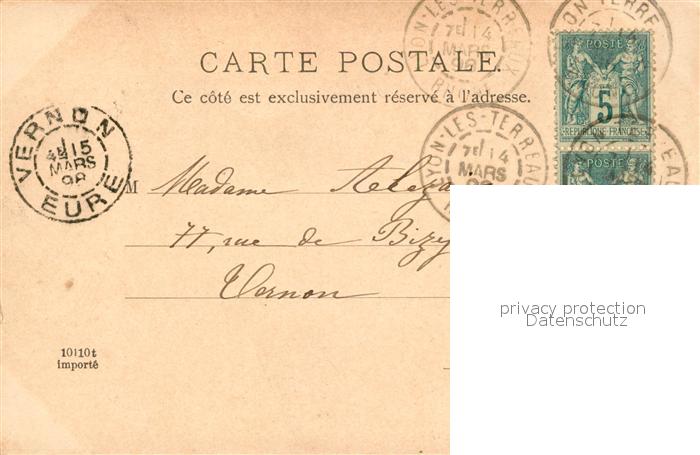 CARTE POSTALE.
Ce côté est exclusivement réservé à l'adresse.
POSTE
5
REPUBLIQUE FRANÇAISE
LYON-LES-TERREAUX
7E 14
MARS
VERNON
15
MARS
98
EURE
M Madame
77, rue de Bizy
Vernon
privacy protection
Datenschutz
10110t
importé